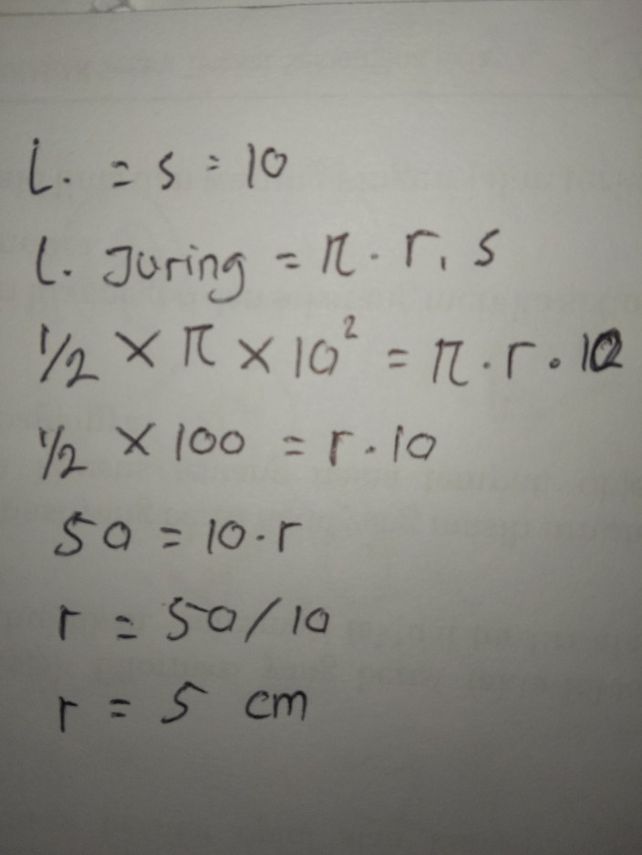 L. = s = 10
L. Juring = π . r . s
1/2 × π × 10² = π . r . 10
1/2 × 100 = r . 10
50 = 10 . r
r = 50/10
r = 5 cm